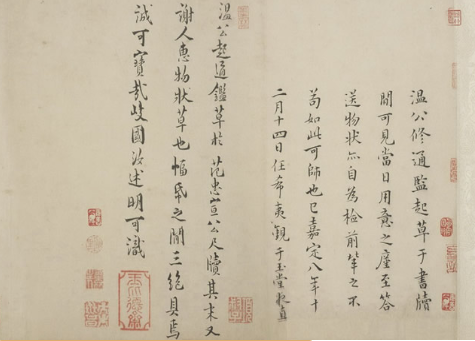 溫公修通鑑起草于書牘
間可見當日用意之廑至答
送物狀亦自為檢前輩之不
苟如此可師也已嘉定八年十
二月十四日任希夷觀于玉堂夜直
溫公起通鑑草於范忠宣公尺牘其末又
謝人惠物狀草也幅帋之間三絕具焉
誠可寶哉岐國汝述明可識